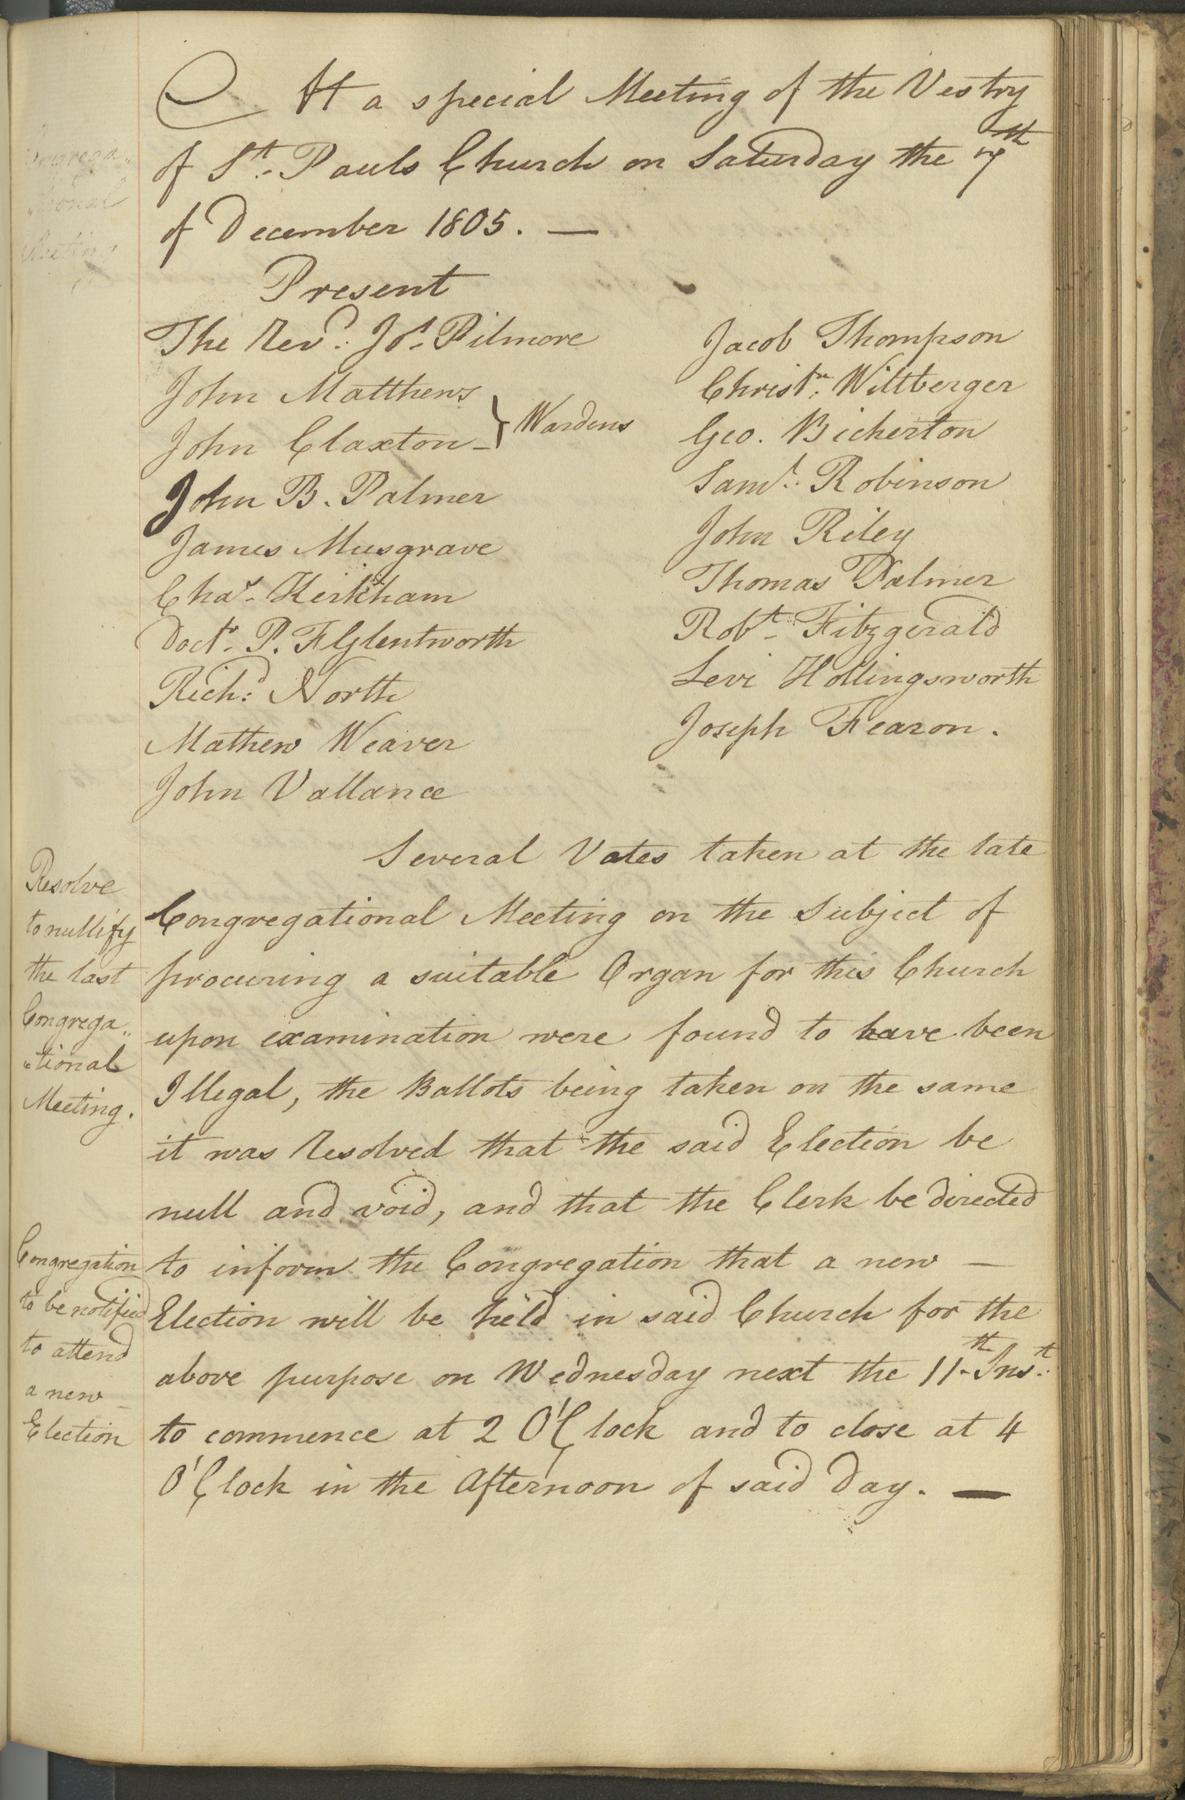 At a special Meeting of the Vestry
of St. Pauls Church on Saturday the 7th
of December 1805. —
Present
The Revd. Jos. Pilmore
John Matthews
John Claxton } Wardens
John B. Palmer
James Musgrave
Chas. Kirkham
Doctr. P. F Glentworth
Richd. North
Mathew Weaver
John Vallance
Jacob Thompson
Christr. Wiltberger
Geo. Bickerton
Saml. Robinson
John Riley
Thomas Palmer
Robt. Fitzgerald
Levi Hollingsworth
Joseph Fearon.
Several Votes taken at the late
Congregational Meeting on the Subject of
procuring a suitable Organ for this Church
upon examination were found to have been
Illegal, the Ballots being taken on the same
it was Resolved that the said Election be
null and void, and that the Clerk be directed
to inform the Congregation that a new —
Election will be held in said Church for the
above purpose on Wednesday next the 11th Inst.
to commence at 2 O'Clock and to close at 4
O'Clock in the Afternoon of said Day. —
Resolve
to nullify
the last
Congrega..
..tional
Meeting.
Congregation
to be notified
to attend
a new
Election